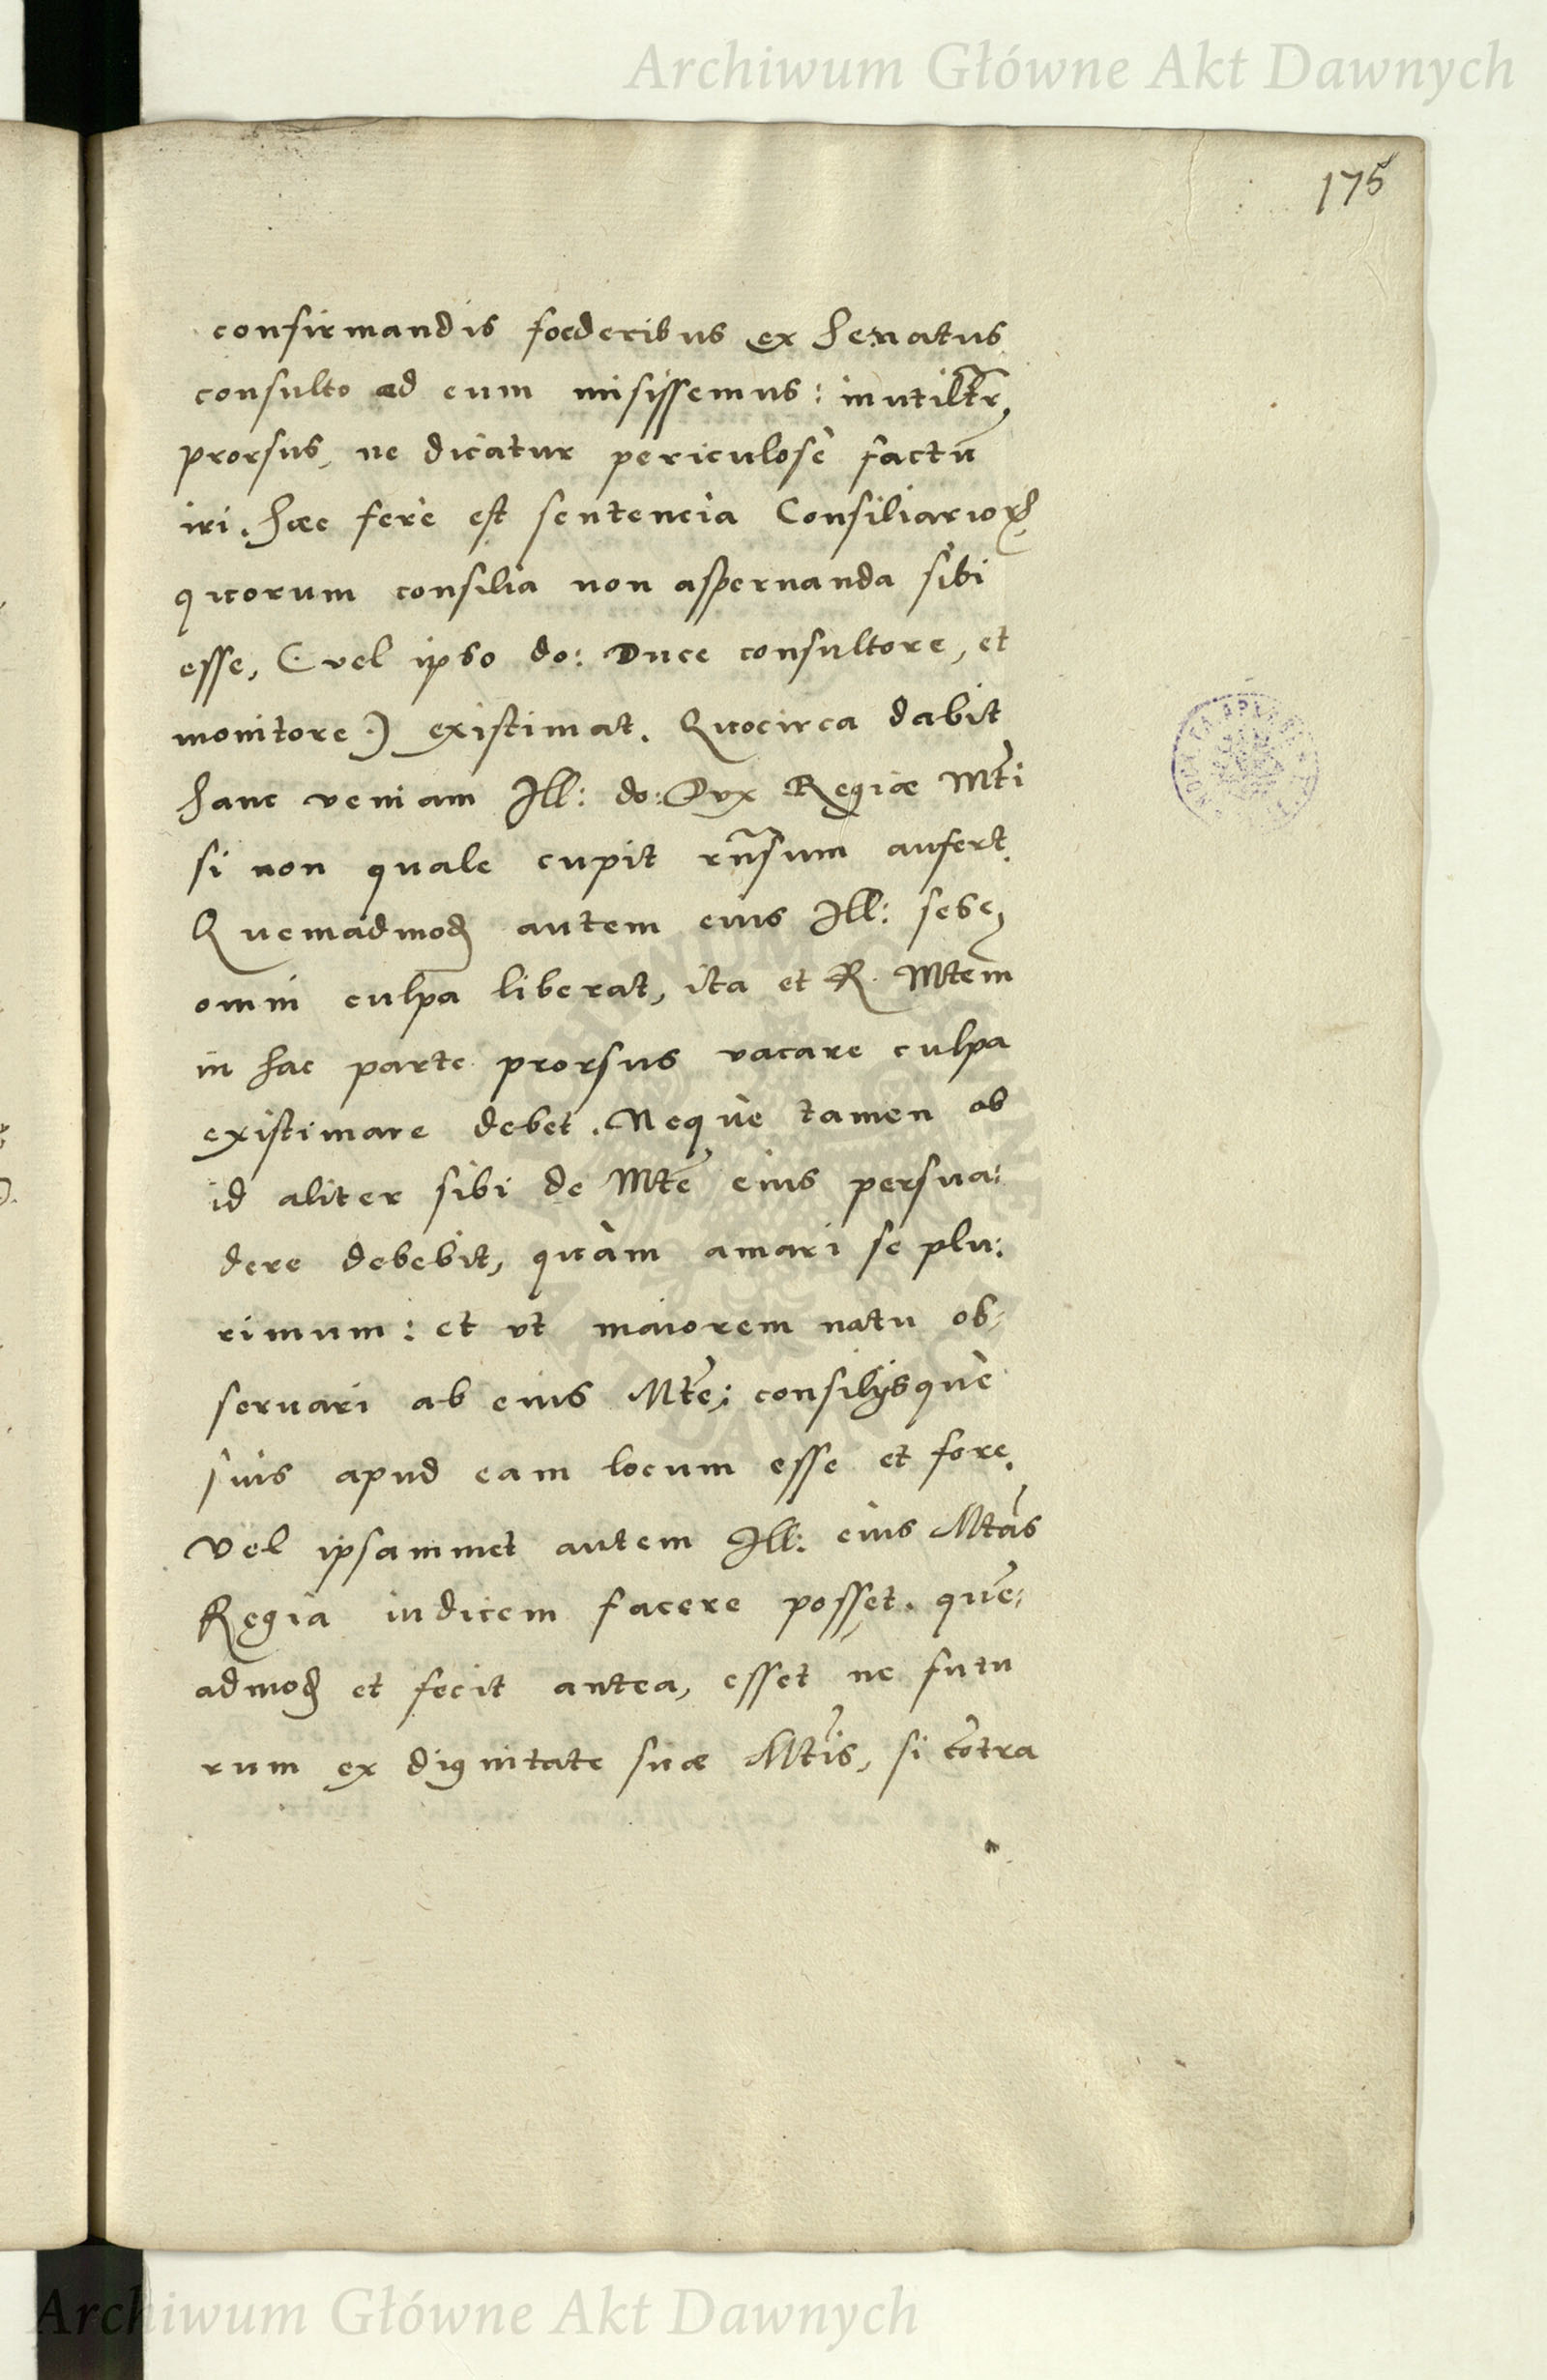 Archiwum Główne Akt Dawnych
175
confirmandis foederibus ex Senatus
consulto ad eum misissemus: inutiltr̃
prorsus, ne dicatur periculosè factũ
iri. Haec ferè est sentencia Consiliariorꝝ
quorum consilia non aspernanda sibi
esse, (vel ipso do: Duce consultore, et
monitore) existimat. Quocirca dabit
hanc veniam Ill: do: Dux Regiae Mti
si non quale cupit rñsum aufert.
Quemadmodũ autem eius Ill: sese
omni culpa liberat, ita et R. Mtem
in hac parte prorsus vacare culpa
existimare debet. Neque tamen ob
id aliter sibi de Mte eius persua:
dere debebit, quàm amari se plu:
rimum: et vt maiorem natu ob:
seruari ab eius Mte; consilijsque
suis apud eam locum esse et fore.
Vel ipsammet autem Ill: eius Mtas
Regia iudicem facere posset. quẽ:
admodũ et fecit antea, esset ne futu
rum ex dignitate suae Mtis, si cõtra
Archiwum Główne Akt Dawnych